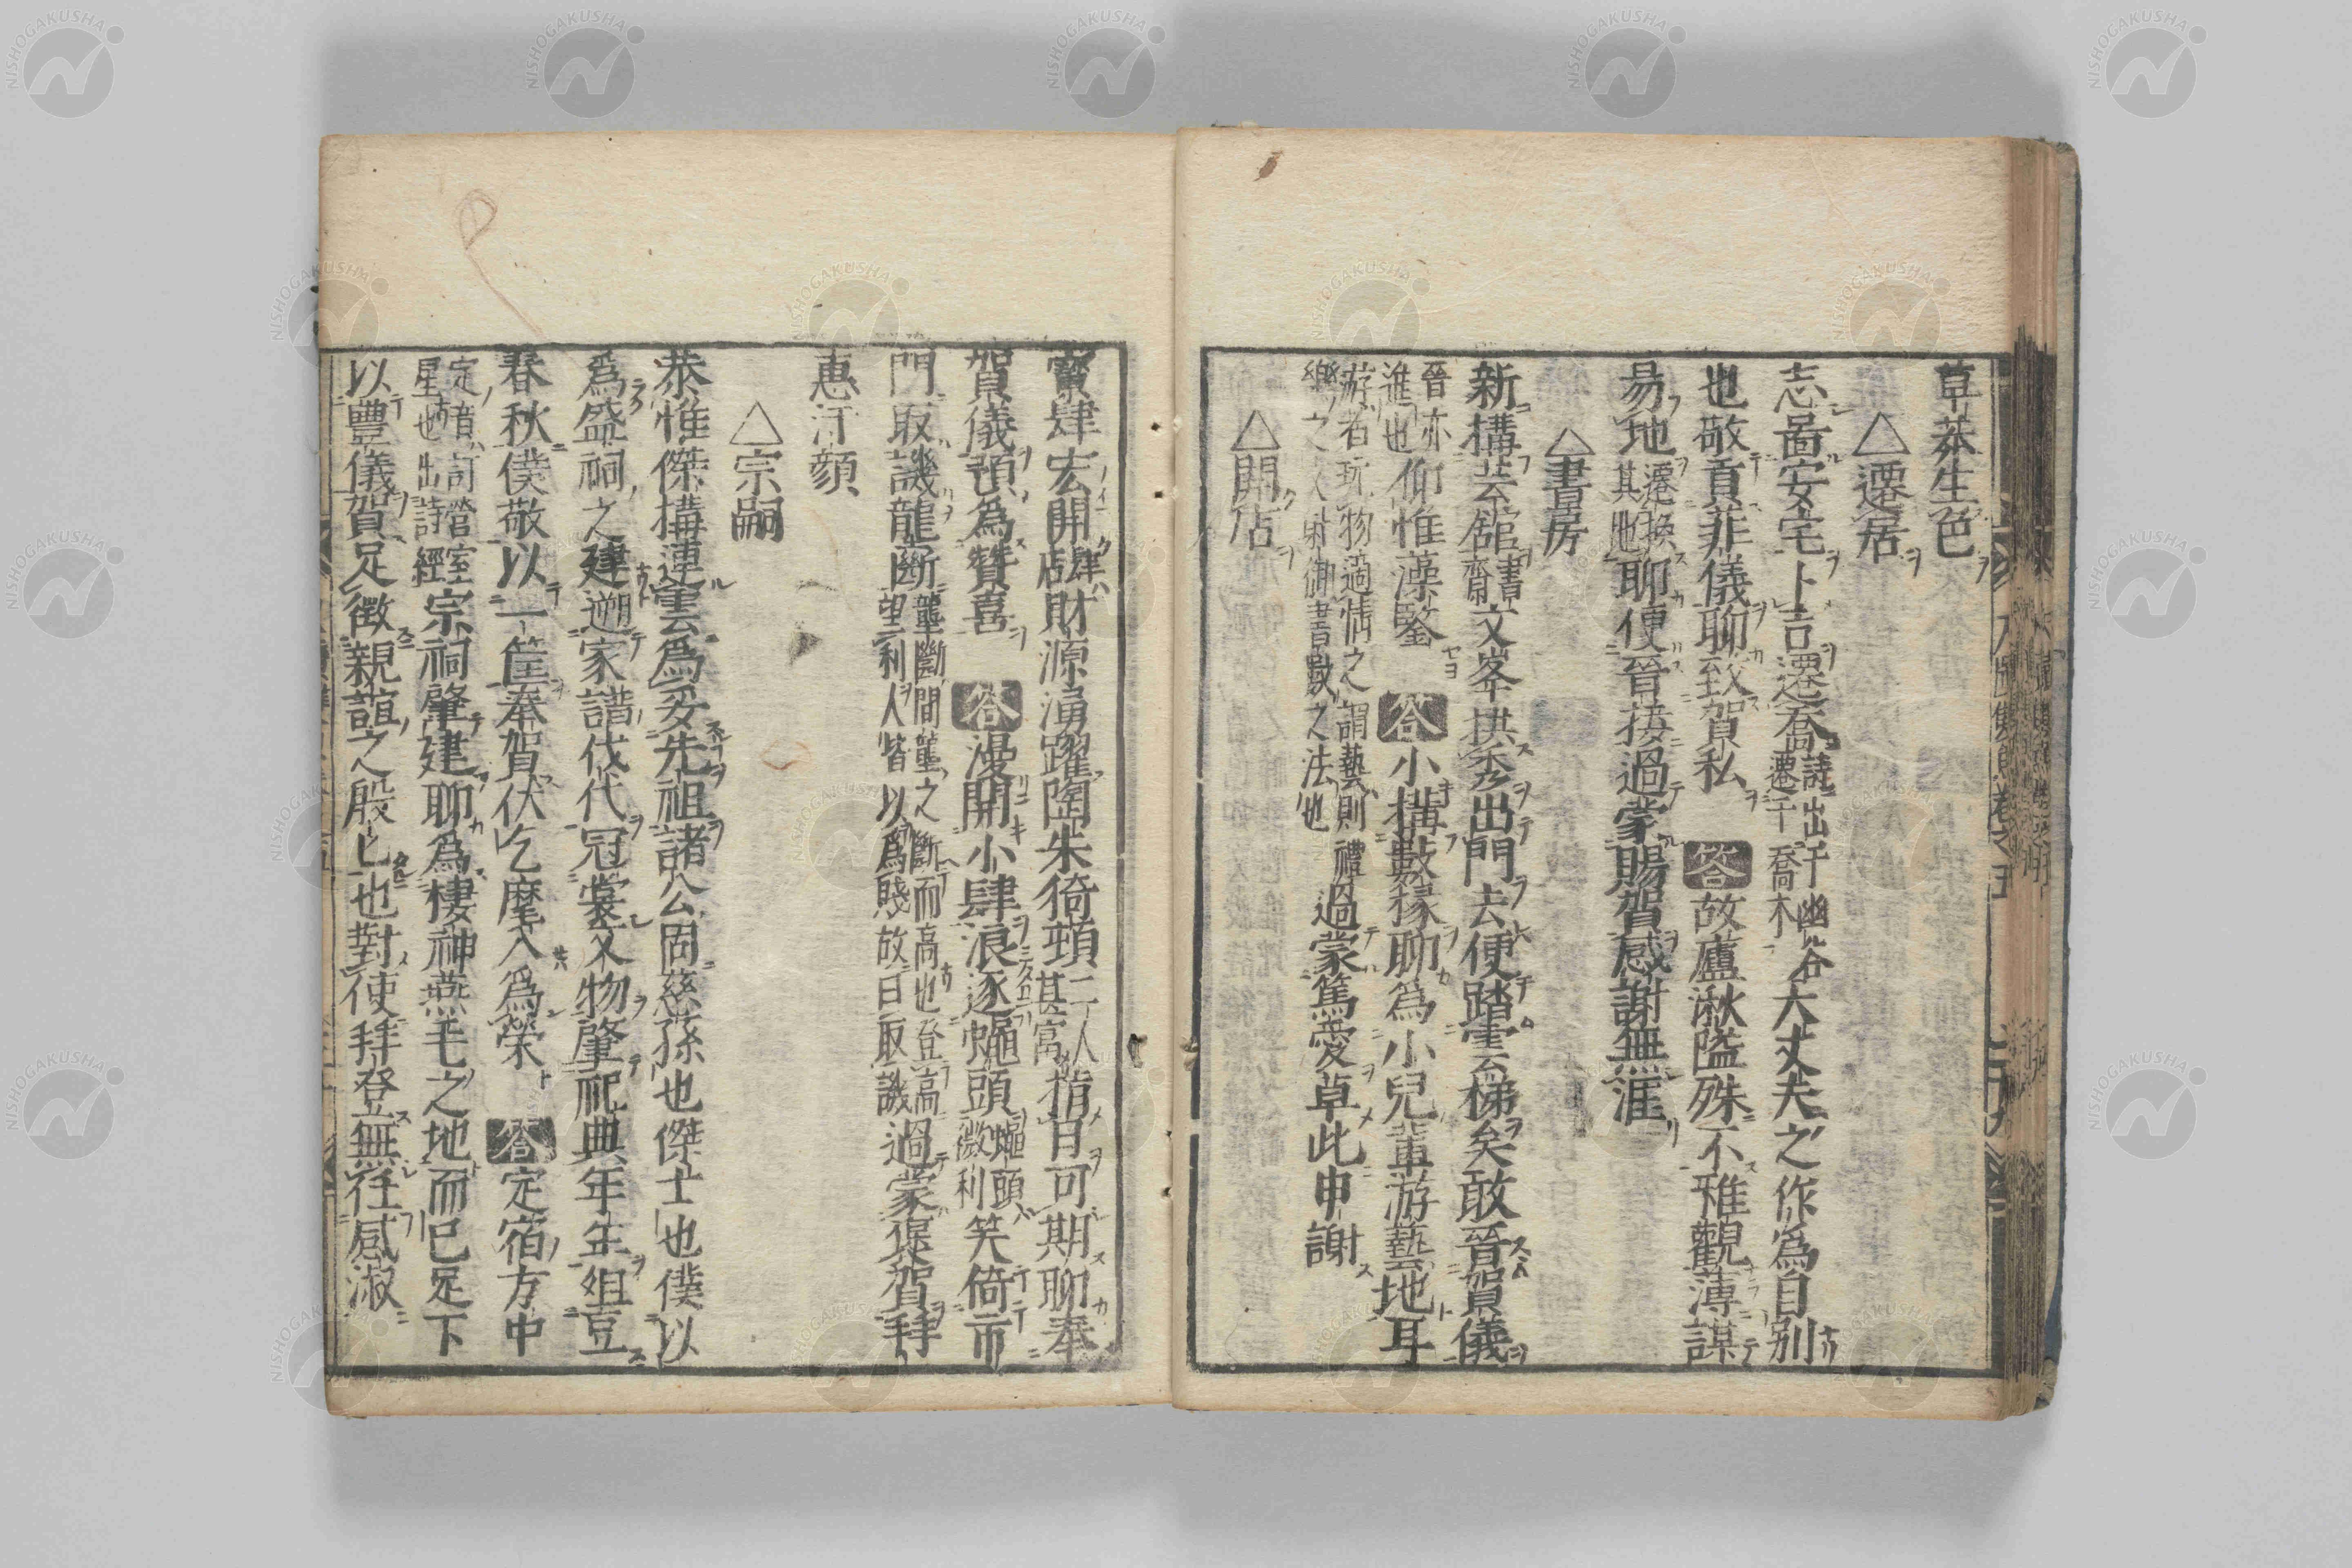 草莽生色
△遷居
志啚安宅卜吉遷喬詩出于幽谷遷于喬木大丈夫之作爲自別
也敬貢菲儀聊致賀私 答故廬湫隘殊不雅觀薄謀
易地遷換其地聊便晉接過蒙賜賀感謝無涯
△書房
新搆芸舘書齋文峯拱秀出門去便踏雲梯矣敢晉賀儀
晉亦進也仰惟藻鑒 答小搆數椽聊爲小兒輩游藝地耳
游者玩物適情之謂藝則禮樂之文射御書數之法也過蒙篤愛草此申謝
△開店
寳肆宏開肆店財源湧躍陶朱猗頓二人甚富指日可期聊奉
賀儀預爲贊喜 答漫開小肆浪逐蠅頭蠅頭微利笑倚市
門取譏龍斷壟斷間壟之斷而高也登高望利人皆以爲賤故曰取譏過蒙褒賀拜
惠汗顏
△宗嗣
恭惟傑搆連雲爲妥先祖諸公固慈孫也傑士也僕以
爲盛祠之建遡家譜伐代冠裳文物肇祀典年年俎豆
春秋僕敬以一筐奉賀伏乞麾入爲榮 答定宿方中
定者訶營室星也出詩經宗祠肇建聊爲棲神燕毛之地而已足下
以豐儀賀足徵親誼之殷也對使拜登無任感淑
NISHOGAKUSHA